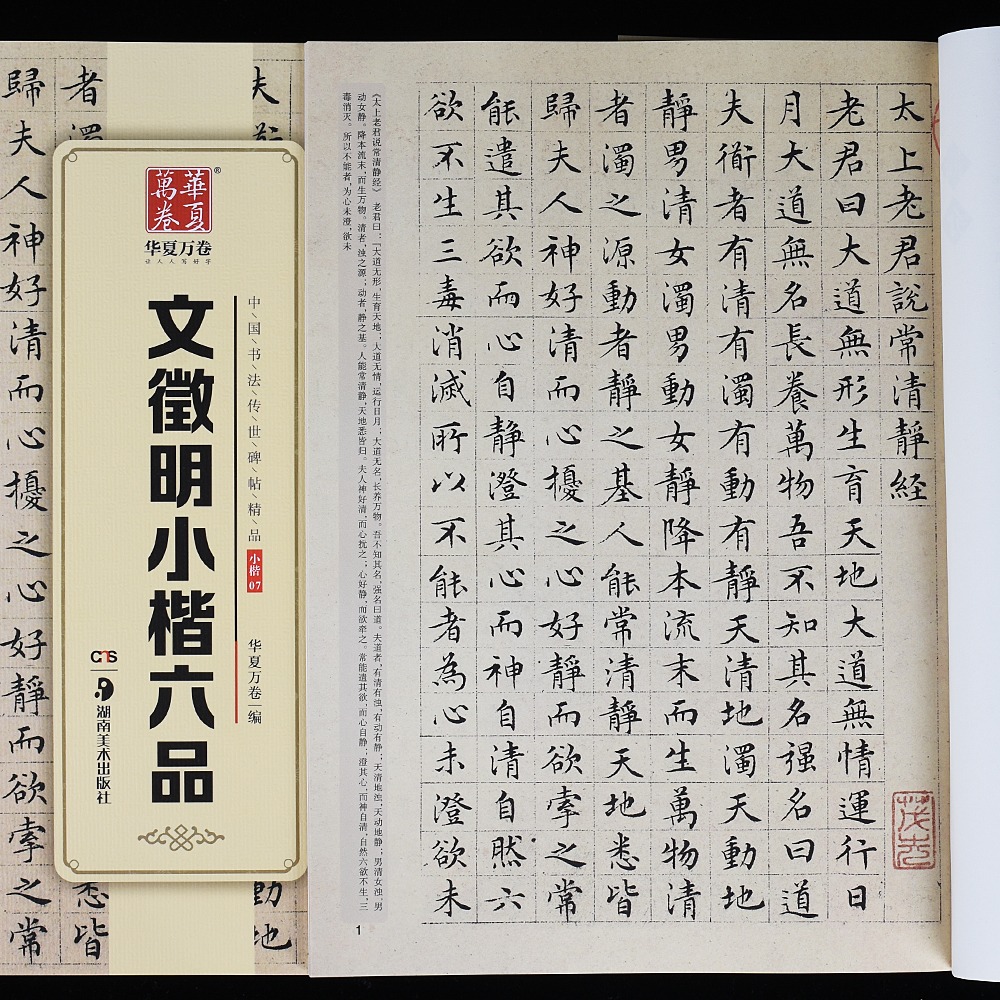 華夏
萬卷
®
华夏万卷
让人人写好字
中国书法传世碑帖精品
小楷07
文徵明小楷六品
华夏万卷 编
湖南美术出版社
夫
者
悉皆
歸夫人神好清而心擾之心好靜而欲牽之常
太上老君說常清靜經
老君曰大道無形生育天地大道無情運行日
月大道無名長養萬物吾不知其名强名曰道
夫衜者有清有濁有動有靜天清地濁天動地
靜男清女濁男動女靜降本流末而生萬物清
者濁之源動者靜之基人能常清靜天地悉皆
歸夫人神好清而心擾之心好靜而欲牽之常
能遣其欲而心自静澄其心而神自清自然六
欲不生三毒消滅所以不能者為心未澄欲未
《太上老君说常清静经》 老君曰：「大道无形，生育天地；大道无情，运行日月；大道无名，长养万物。吾不知其名，强名曰道。夫道者，有清有浊，有动有静；天清地浊，天动地静；男清女浊，男
动女静。降本流末，而生万物。清者，浊之源；动者，静之基。人能常清静，天地悉皆归。夫人神好清，而心扰之；心好静，而欲牵之。常能遣其欲，而心自静；澄其心，而神自清。自然六欲不生，三
毒消灭。所以不能者，为心未澄，欲未
1